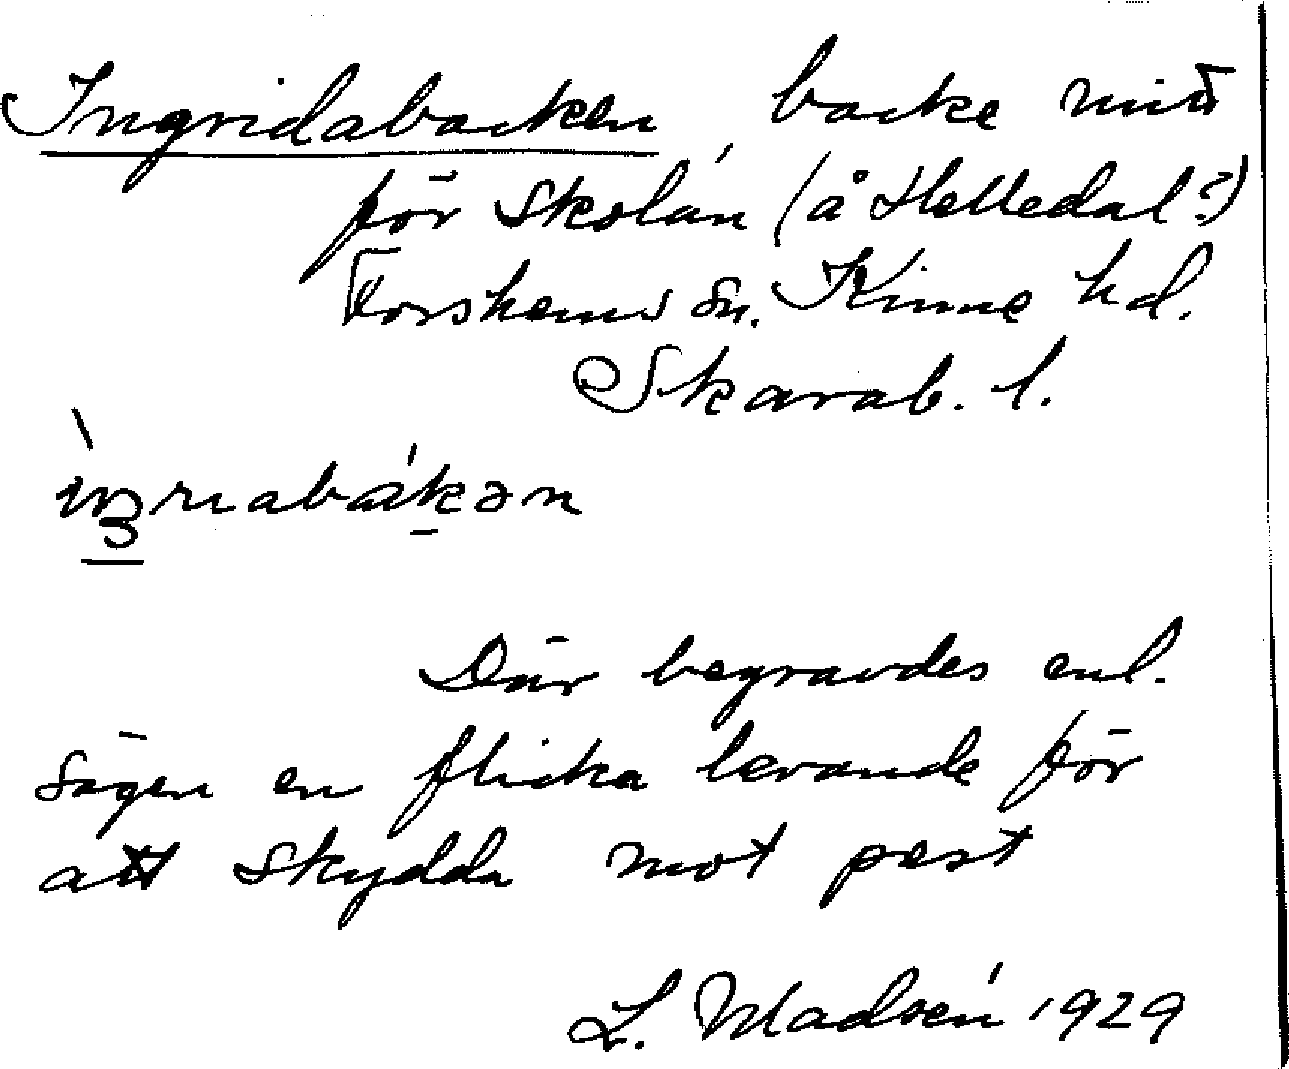 Ingridabacken, backe mitt
för Skolan (å Helledal?)
Forshems sn. Kinne hd.
Skarab. l.
Där begravdes enl.
sägen en flicka levande för
att skydda mot pest
L. Madsén 1929